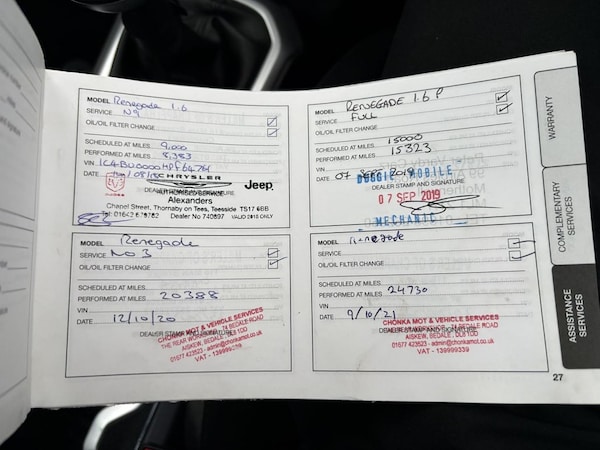 MODEL Renegade 1.6
SERVICE No
OIL/OIL FILTER CHANGE
SCHEDULED AT MILES 9,000
PERFORMED AT MILES 8,383
VIN
DATE
CHRYSLER
Jeep
AUTHORISED SERVICE
Alexanders
Chapel Street, Thornaby on Tees, Teesside TS17 6BB
Tel: 01642 679782 Dealer No 740897 VALID 2018 ONLY
MODEL RENEGADE 1.6 P
SERVICE FULL
OIL/OIL FILTER CHANGE
SCHEDULED AT MILES 15000
PERFORMED AT MILES 15323
VIN
DATE 07 2019
MOBILE
DEALER STAMP AND SIGNATURE
07 SEP 2019
MECHANIC
MODEL Renegade
SERVICE NO 3
OIL/OIL FILTER CHANGE
SCHEDULED AT MILES
PERFORMED AT MILES 20388
VIN
DATE 12/10/20
CHONKA MOT & VEHICLE SERVICES
AISKEW, BEDALE DL8 1DD
01677 423523 - admin@chonkamot.co.uk
VAT - 139999339
MODEL Renegade
SERVICE
OIL/OIL FILTER CHANGE
SCHEDULED AT MILES
PERFORMED AT MILES 24730
VIN
DATE 9/10/21
CHONKA MOT & VEHICLE SERVICES
AISKEW, BEDALE, DL8 1DD
01677 423523 - admin@chonkamot.co.uk
VAT - 139999339
27
WARRANTY
COMPLEMENTARY
SERVICES
ASSISTANCE
SERVICES